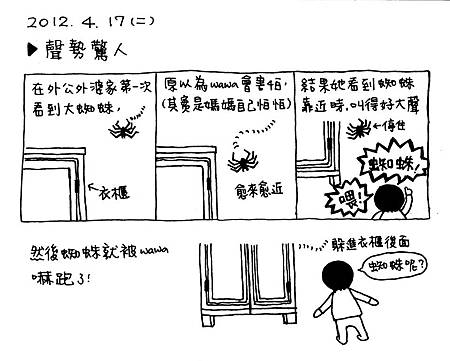 2012. 4. 17 (二)
▶聲勢驚人
在外公外婆家第一次
看到大蜘蛛,
←衣櫃
原以為wawa會害怕,
(其實是媽媽自己怕怕)
愈來愈近
結果她看到蜘蛛
靠近時,叫得好大聲
←停住
蜘蛛!
喂!
然後蜘蛛就被wawa
嚇跑了!
躲進衣櫃後面
蜘蛛呢?